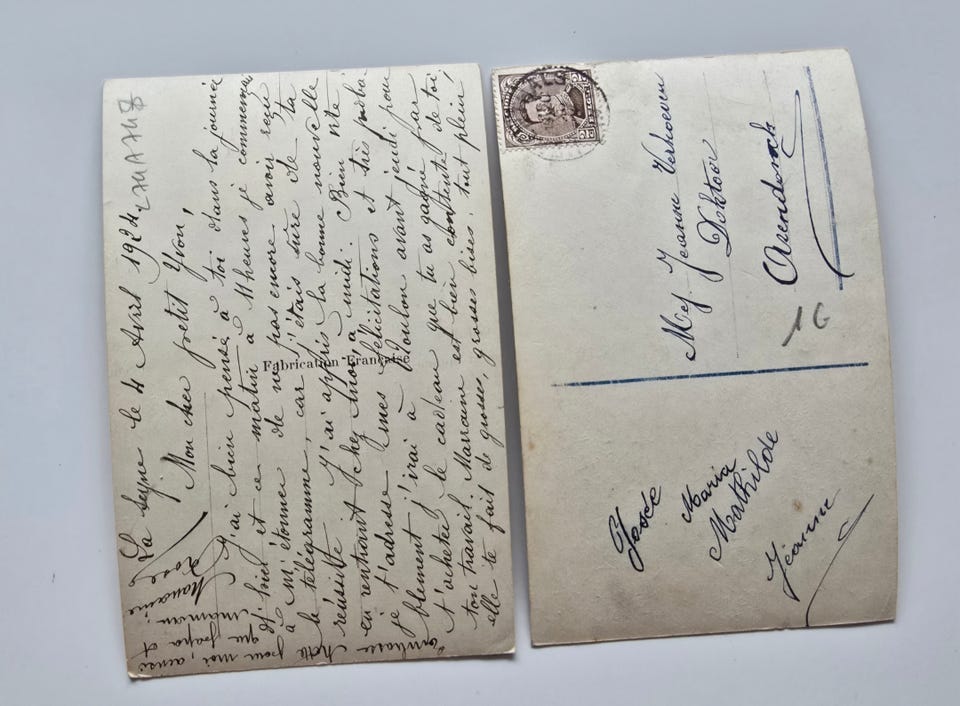 La Seyne le 4 Avril 1924
Mon cher petit Yvon.
J'ai bien pensé à toi dans la journée
d'hier et ce matin à 11 heures je commençai
à m'étonner de ne pas encore avoir reçu
le télégramme, car j'étais sûre de ta
réussite. J'ai appris la bonne nouvelle
en rentrant chez moi à midi. Bien vite
je t'adresse mes félicitations et très proba
blement j'irai à Toulon avant jeudi pour
t'acheter le cadeau que tu as gagné par
ton travail. Marraine est bien contente de toi
elle te fait de grosses, grosses bises, tout plein!
Embrasse
pour moi, ainsi
que papa et
maman.
Marraine
Rose
Fabrication Française
Mej Jeanne Verhoeven
Doktoor
Arendonck
1G
Josée
Maria
Mathilde
Jeanne